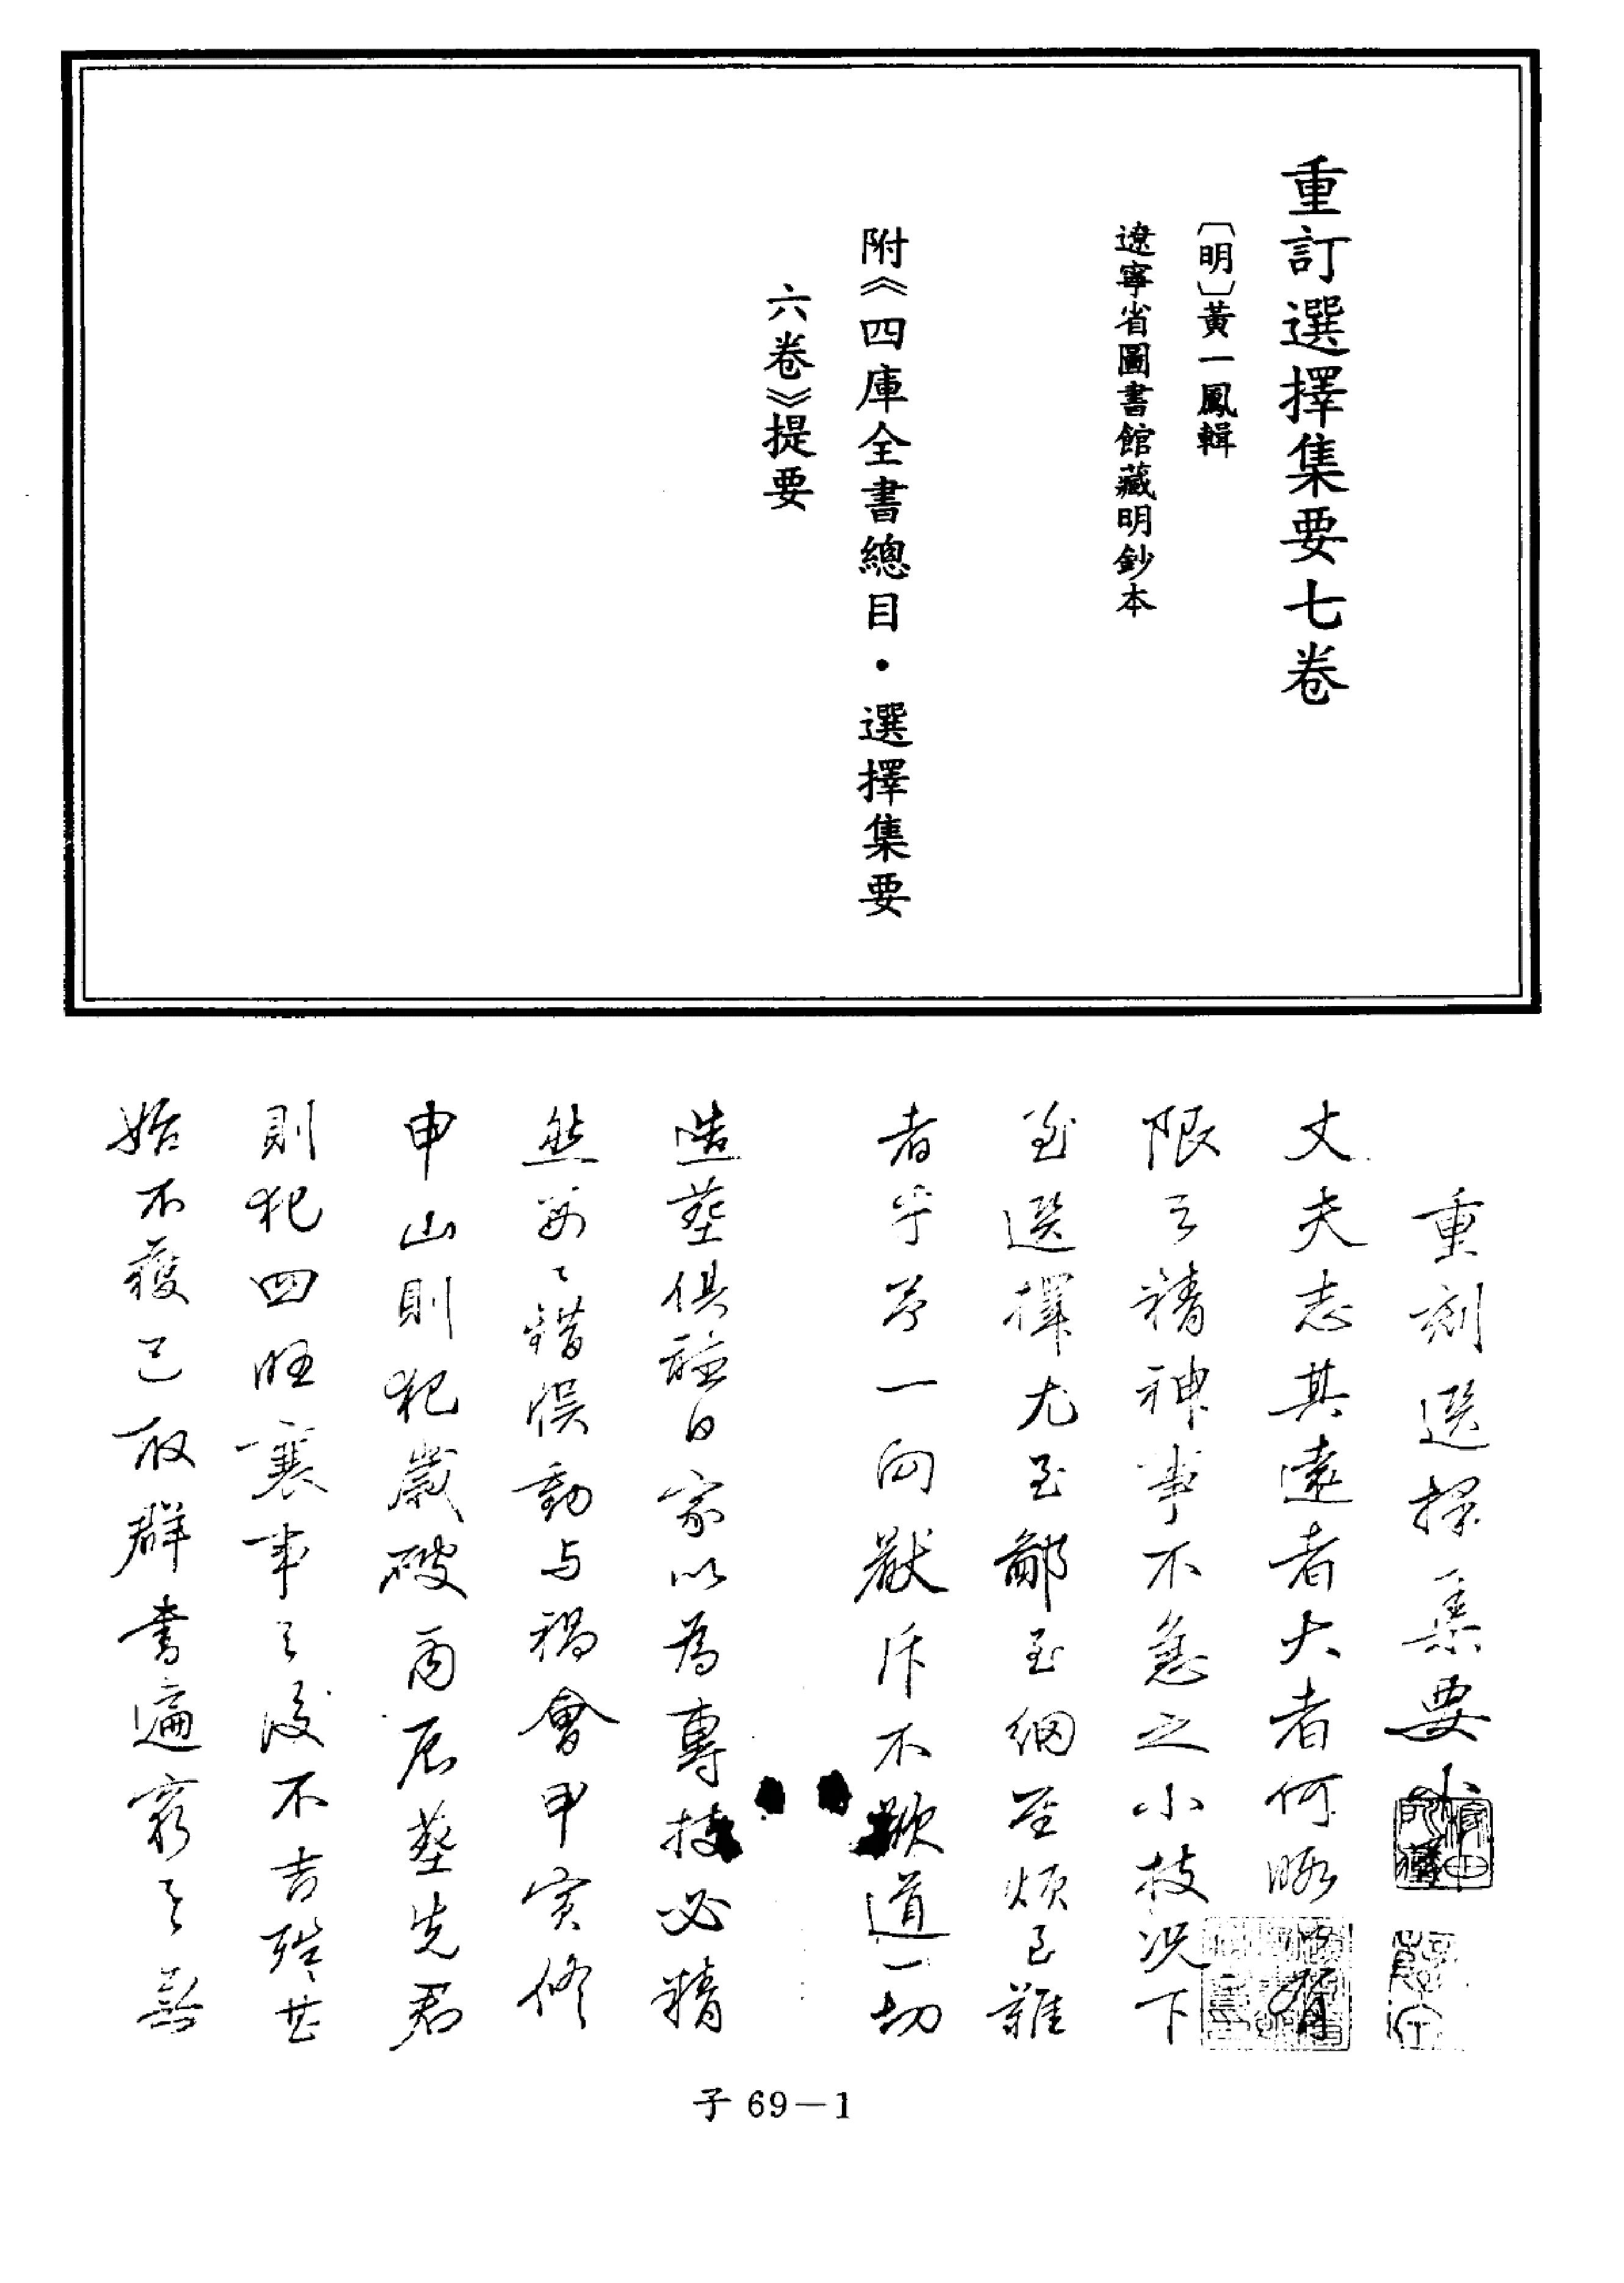 重訂選擇集要七卷
〔明〕黃一鳳輯
遼寧省圖書館藏明鈔本
附《四庫全書總目·選擇集要
六卷》提要
重刻選擇集要小
丈夫志其遠者大者何暇以有
限之精神事不急之小技况下
至選擇尤至鄙至細至煩已難
者乎予一向厭斥不欲道一切
造葬俱聽日家以為專技必精
然每々錯误動与禍會甲寅修
申山則犯歲破丙辰葬先君
則犯四旺襄事之後不吉
始不獲已取群書遍窮之
子 69－1